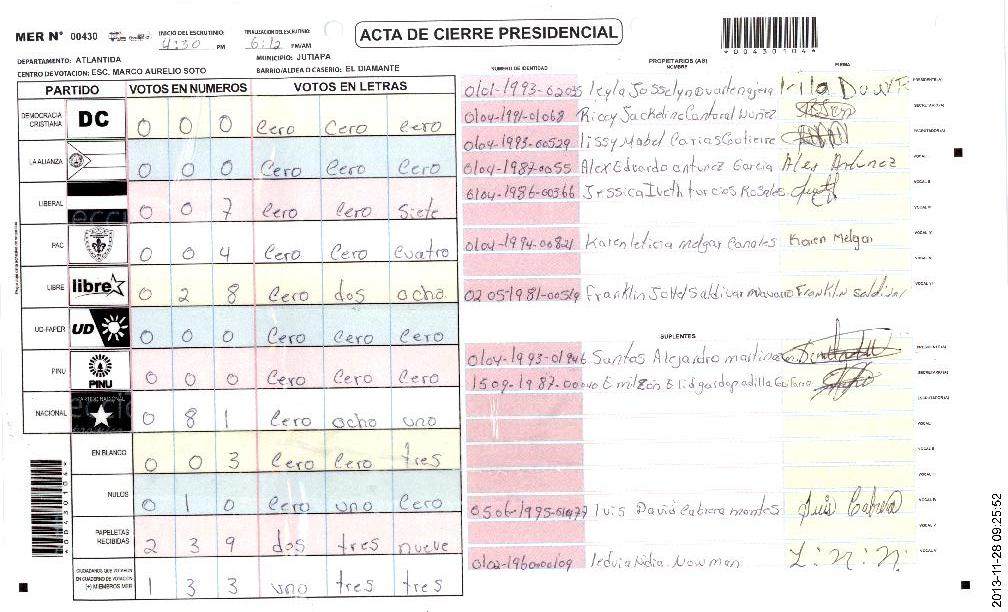 MER N° 00430
INICIO DEL ESCRUTINIO: 4:30 PM
FINALIZACION DEL ESCRUTINIO: 6:12 PM/AM
ACTA DE CIERRE PRESIDENCIAL
*00430104*
DEPARTAMENTO: ATLANTIDA
MUNICIPIO: JUTIAPA
CENTRO DE VOTACION: ESC. MARCO AURELIO SOTO
BARRIO/ALDEA O CASERIO: EL DIAMANTE
PARTIDO VOTOS EN NUMEROS VOTOS EN LETRAS
DEMOCRACIA CRISTIANA DC 0 0 0 Cero Cero cero
LA ALIANZA 0 0 0 Cero Cero Cero
LIBERAL 0 0 7 Cero Cero Siete
PAC 0 0 4 Cero Cero cuatro
LIBRE libre 0 2 8 Cero dos ocho
UD-FAPER UD 0 0 0 Cero Cero Cero
PINU PINU 0 0 0 Cero Cero Cero
NACIONAL PARTIDO NACIONAL 0 8 1 Cero ocho uno
EN BLANCO 0 0 3 Cero Cero tres
NULOS 0 1 0 Cero uno Cero
PAPELETAS RECIBIDAS 2 3 9 dos tres nueve
CIUDADANOS QUE VOTARON EN CUADERNO DE VOTACION (+) MIEMBROS MER 1 3 3 uno tres tres
*00430104*
NUMERO DE IDENTIDAD
PROPIETARIOS (AS)
NOMBRE
FIRMA
PRESIDENTE(A)
SECRETARIO(A)
0104-1991-01068 Riccy Jackeline Cantoral Nuñez
ESCRUTADOR(A)
0104-1993-00529 lissy Mabel Carias Gutierre
VOCAL I
0104-1987-0055 Alex Edvardo antunez Garcia Alex Antunez
VOCAL II
0104-1986-00366 Jessica Iveth turcios Rosales
VOCAL III
VOCAL IV
0104-1994-00821 Karen leticia melgar Canales Karen Melgar
VOCAL V
VOCAL VI
0205-1981-00519 Franklin Saldivar Franklin Saldivar
SUPLENTES
PRESIDENTE(A)
Santos Alejandro martinez
SECRETARIO(A)
1509-1987-00040
ESCRUTADOR(A)
VOCAL I
VOCAL II
VOCAL III
VOCAL IV
luis David Cabrera montes Luis Cabrera
VOCAL V
VOCAL VI
ledvia Nidia Nowman L.N.N.
2013-11-28 09:25:52